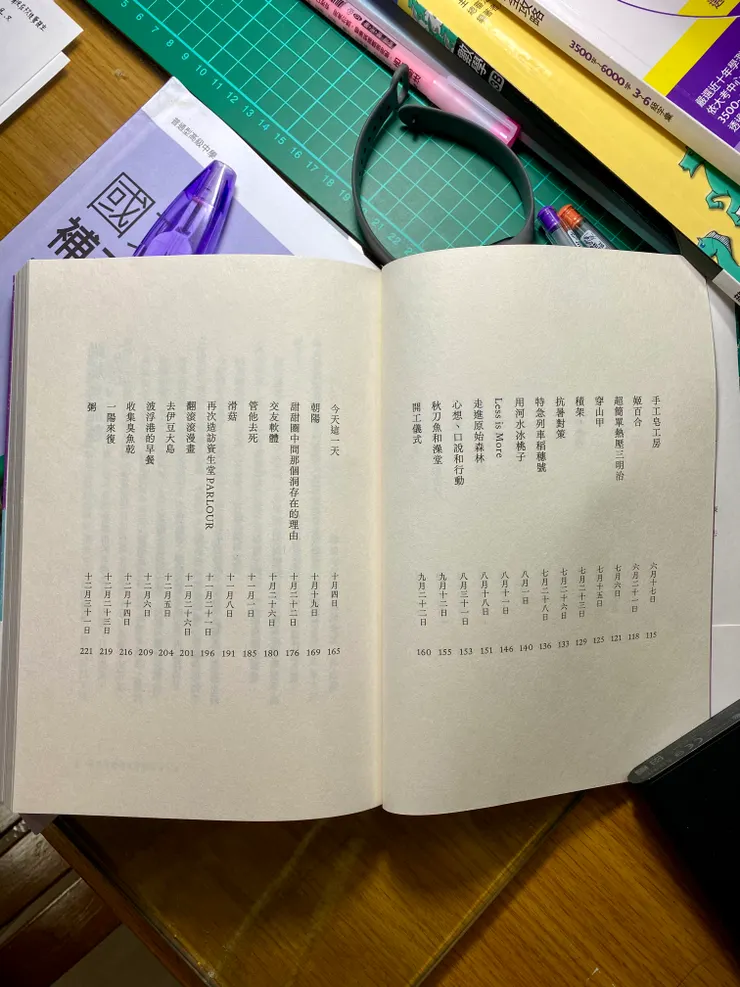 普通型高級中學
國
補
數學
全攻略
3500字~6000字 3-6級字彙
嚴選近十年學
依大考中心
3500-
5 6 7 8 9 10 11 12 13 14 15 16 17 18 19 20 21 22
手工皂工房 六月十七日 115
姬百合 六月二十一日 118
超簡單熱壓三明治 七月六日 121
穿山甲 七月十五日 125
積架 七月二十三日 129
抗暑對策 七月二十六日 133
特急列車稻穗號 七月二十八日 136
用河水冰桃子 八月一日 140
Less is More 八月十一日 146
走進原始森林 八月十八日 151
心想、口說和行動 八月三十一日 153
秋刀魚和澡堂 九月十二日 155
開工儀式 九月二十二日 160
今天這一天 十月四日 165
朝陽 十月十九日 169
甜甜圈中間那個洞存在的理由 十月二十二日 176
交友軟體 十月二十六日 180
管他去死 十一月一日 185
滑菇 十一月八日 191
再次造訪資生堂PARLOUR 十一月二十一日 196
翻滾滾漫畫 十一月二十六日 201
去伊豆大島 十二月五日 204
波浮港的早餐 十二月六日 209
收集臭魚乾 十二月十四日 216
一陽來復 十二月二十三日 219
粥 十二月三十一日 221